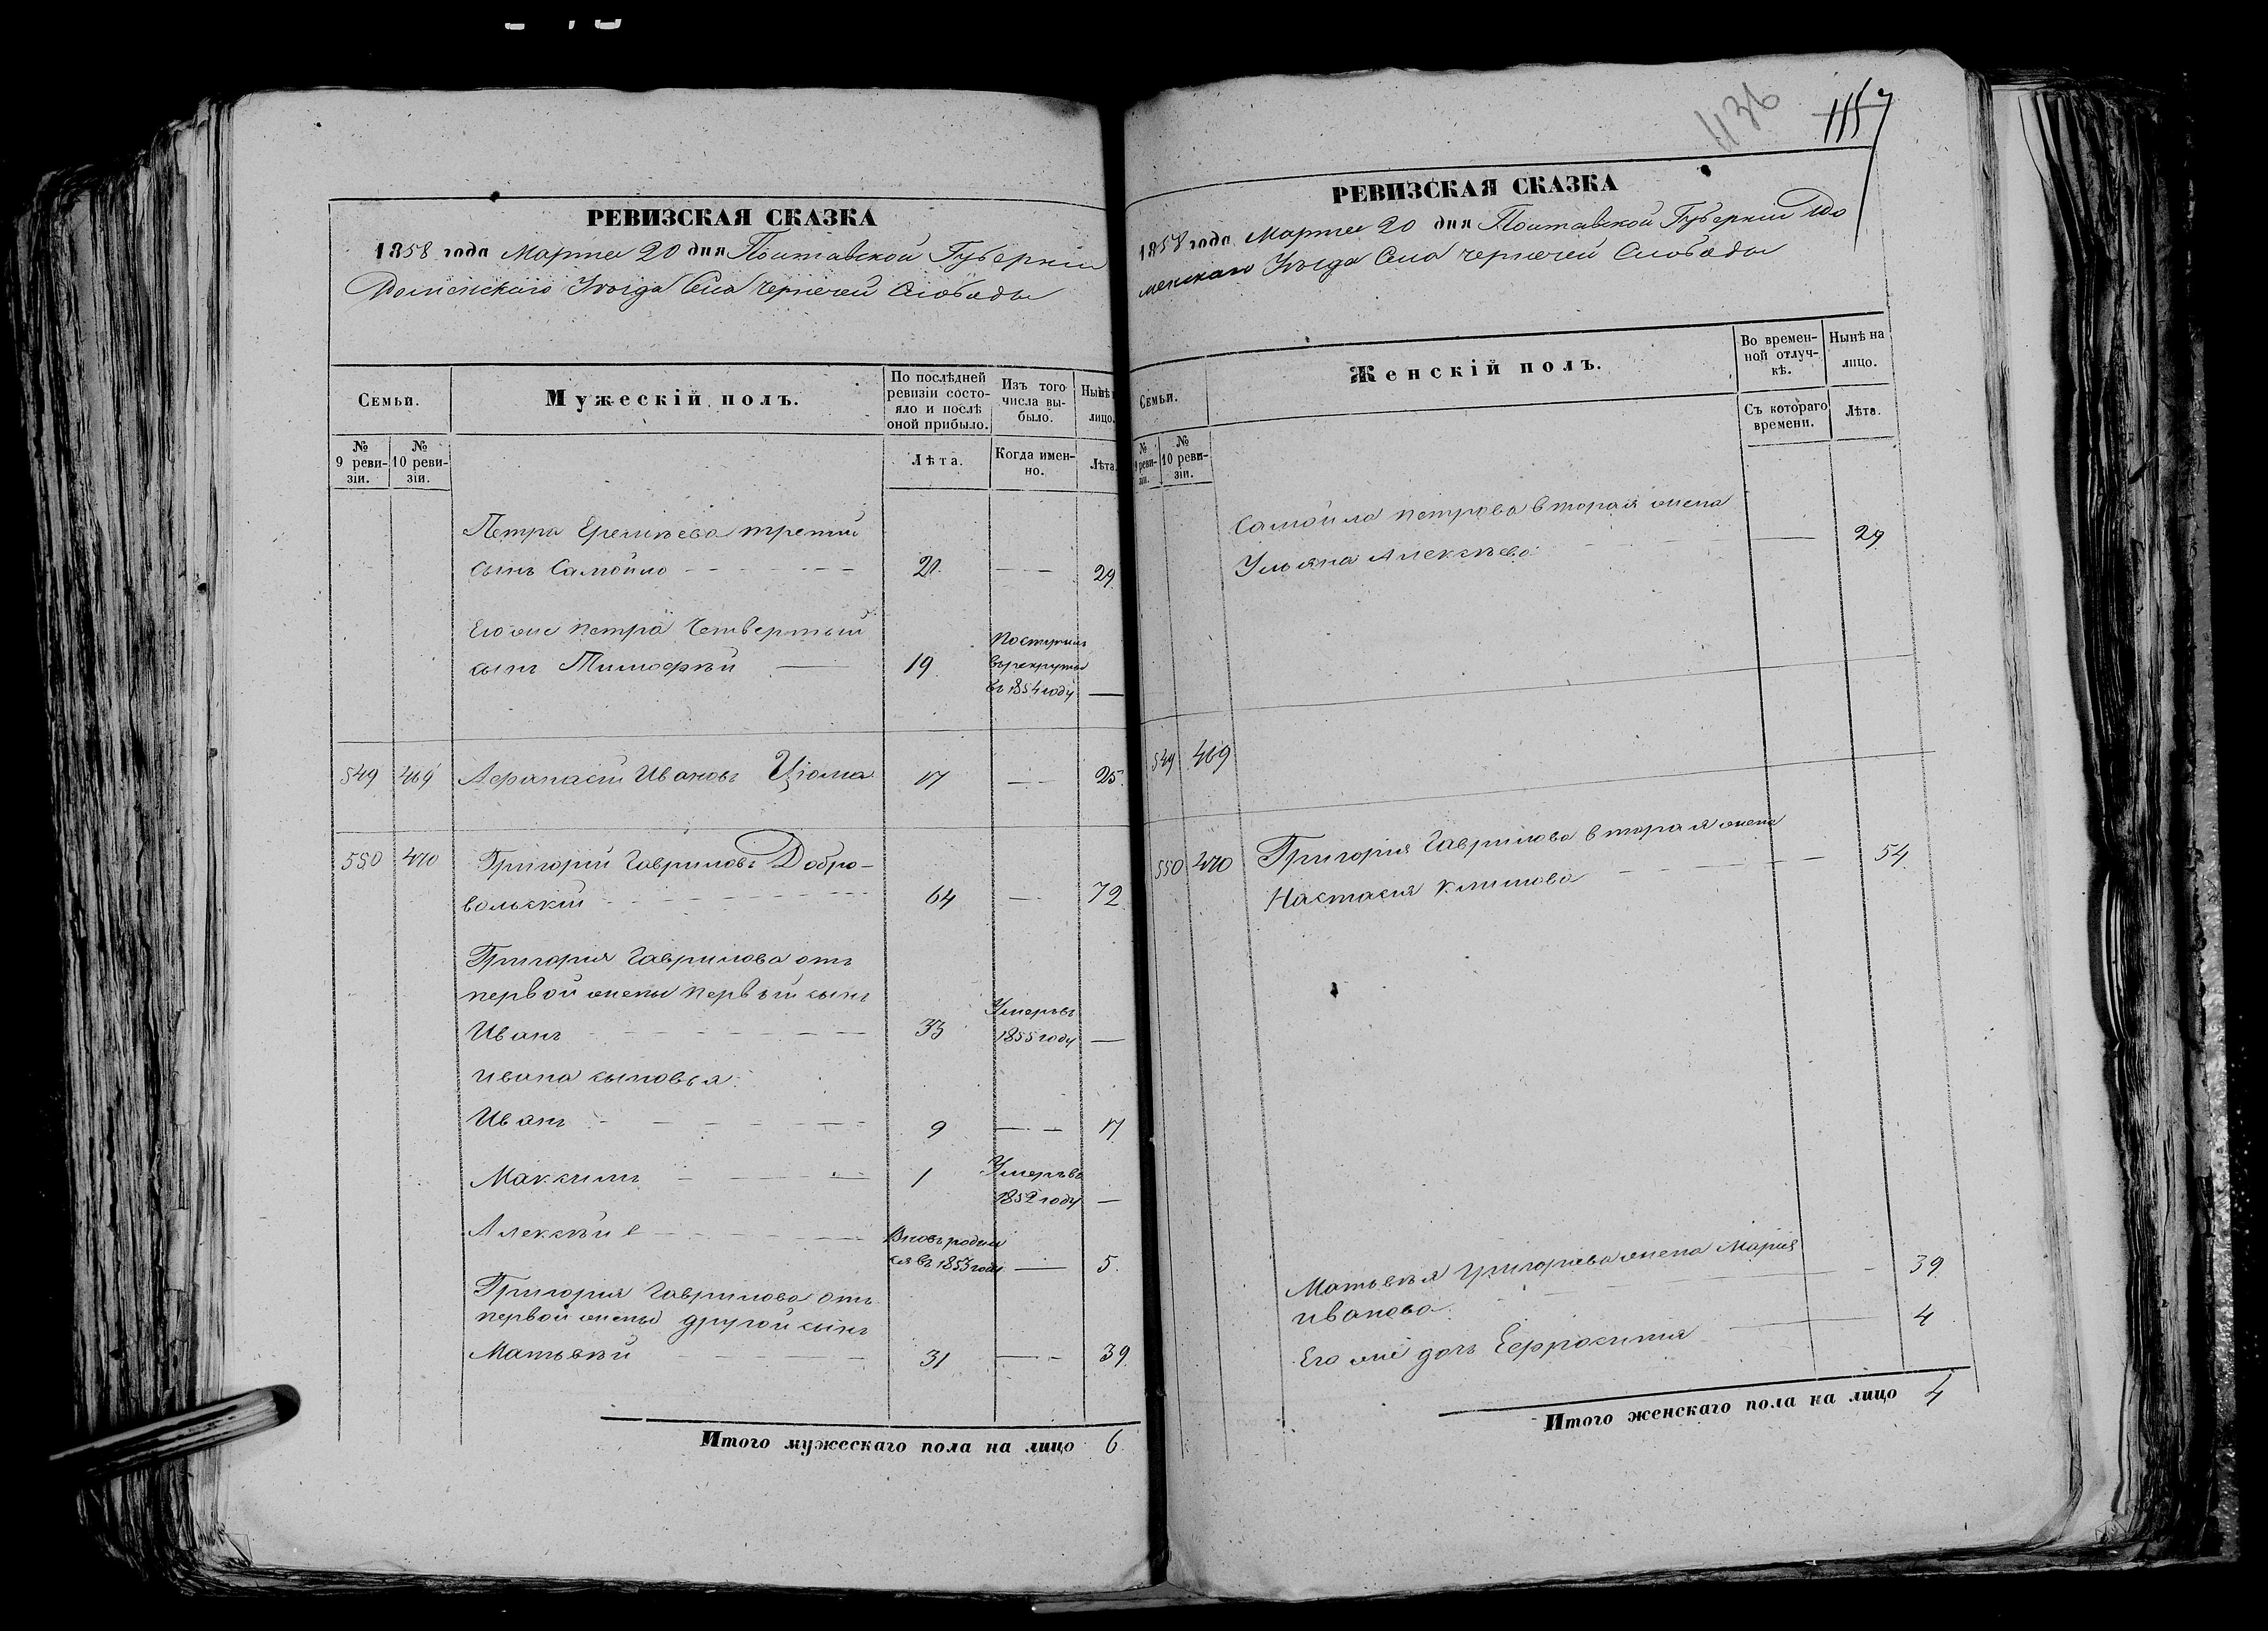 РЕВИЗСКАЯ СКАЗКА
1858 года Марта 20 дня Полтавской Губерніи
Роменскаго Уѣзда Села Чернечей Слободы
Семьи.
Мужескій полъ.
По послѣдней ревизіи состояло и послѣ оной прибыло.
Изъ того числа выбыло.
Нынѣ
лицо.
№ 9 ревизіи.
№ 10 ревизіи.
Лѣта.
Когда именно.
Лѣта.
Петра Еремѣева третій
сынъ Самойло 21 29
Его же Петра Четвертый
сынъ Тимофѣй 19
Поступилъ
въ рекруты
въ 1854 году
549 469 Афанасій Ивановъ Цюма 17 25
550 470 Григорій Гавриловъ Добро-
вольскій 64 72
Григорія Гаврилова отъ
первой жены первый сынъ
Иванъ 33
Умеръ въ
1855 году
Ивана сыновья:
Иванъ 9 17
Максимъ 1
Умеръ въ
1852 году
Алексѣй
Вновь родил
ся въ 1853 году 5.
Григорія Гаврилова отъ
первой жены другой сынъ
Матвѣй 31 39
Итого мужескаго пола на лицо 6
436
1157
РЕВИЗСКАЯ СКАЗКА
1858 года Марта 20 дня Полтавской Губерніи Ро
менскаго Уѣзда Села Чернечей Слободы
Семьи.
Женскій полъ.
Во временной отлучкѣ.
Нынѣ на лицо.
№ 9 ревизіи.
№ 10 ревизіи.
Съ котораго времени.
Лѣта.
Самойла Петрова вторая жена
Ульяна Алексѣева 29
549 469
550 470 Григорія Гаврилова вторая жена
Настасія Климова 54
Матвѣя Григорьева жена Марія
Иванова 39
Его же дочь Ефросинія 4
Итого женскаго пола на лицо 4